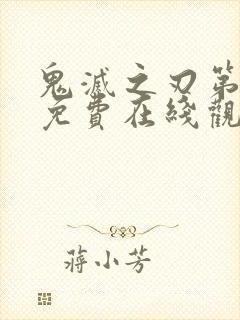 鬼滅之刃第
免費在綫觀
蔣小芳